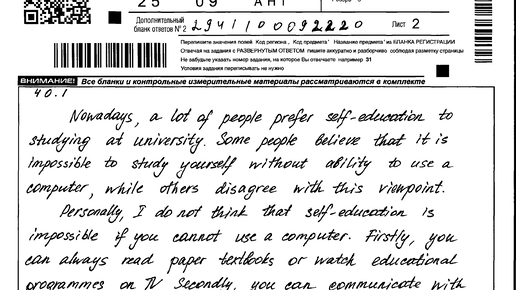 25 09 АНГ
Дополнительный
бланк ответов № 2 2941100092220 Лист 2
Перепишите значения полей "Код региона", "Код предмета", "Название предмета" из БЛАНКА РЕГИСТРАЦИИ
Отвечая на задания с РАЗВЕРНУТЫМ ОТВЕТОМ, пишите аккуратно и разборчиво, соблюдая разметку страницы
Не забудьте указать номер задания, на которое Вы отвечаете, например 31
Условия задания переписывать не нужно
ВНИМАНИЕ! Все бланки и контрольные измерительные материалы рассматриваются в комплекте
40.1
Nowadays, a lot of people prefer self-education to
studying at university. Some people believe that it is
impossible to study yourself without ability to use a
computer, while others disagree with this viewpoint.
Personally, I do not think that self-education is
impossible if you cannot use a computer. Firstly, you
can always read paper textbooks or watch educational
programmes on TV. Secondly, you can communicate with